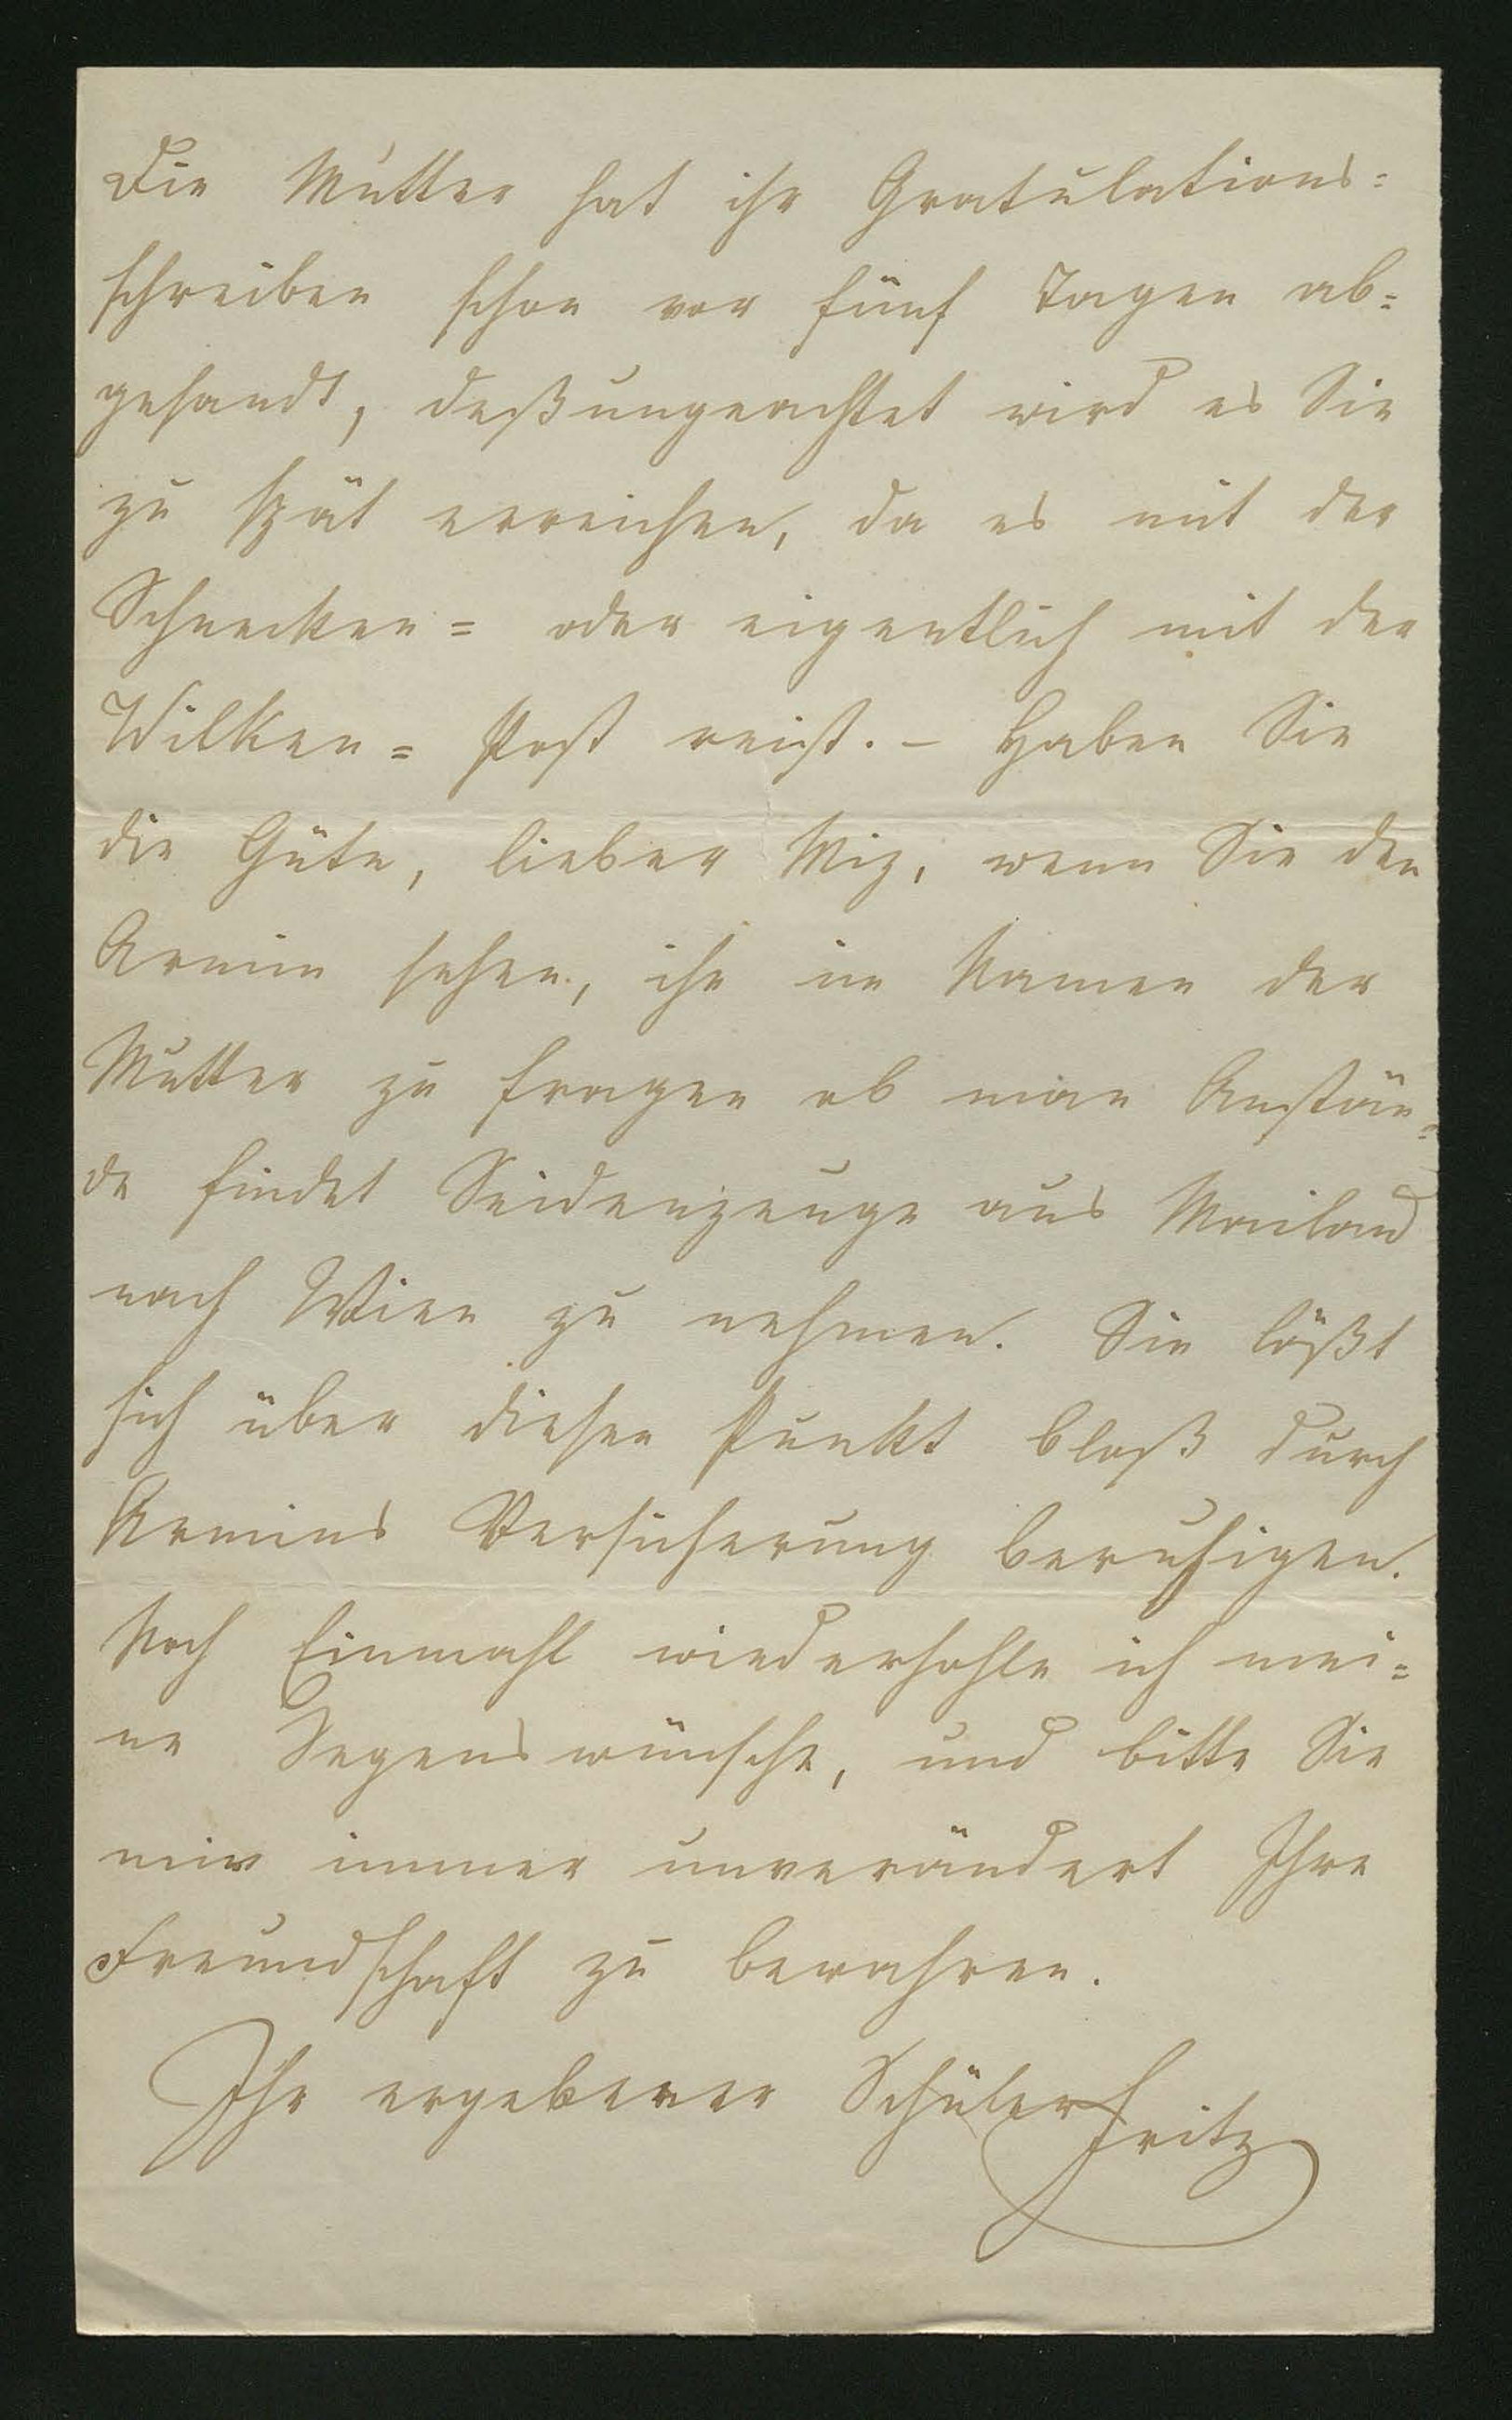 Die Mutter hat ihr Gratulations=
schreiben schon vor fünf Tagen ab=
gesandt, deßungeachtet wird es Sie
zu spät erreichen, da es mit der
Schnecken= oder eigentlich mit der
Wilken= Post reist. – Haben Sie
die Güte, lieber Miz, wenn Sie den
Armin sehen, ihn im Namen der
Mutter zu fragen ob man Anstän=
de findet Seidenzeuge aus Mailand
nach Wien zu nehmen. Sie läßt
sich über diesen Punkt bloß durch
Armins Versicherung beruhigen.
Noch Einmahl wiederhohle ich mei=
ne Segenswünsche, und bitte Sie
mir immer unverändert Ihre
Freundschaft zu bewahren.
Ihr ergebener Schüler Fritz